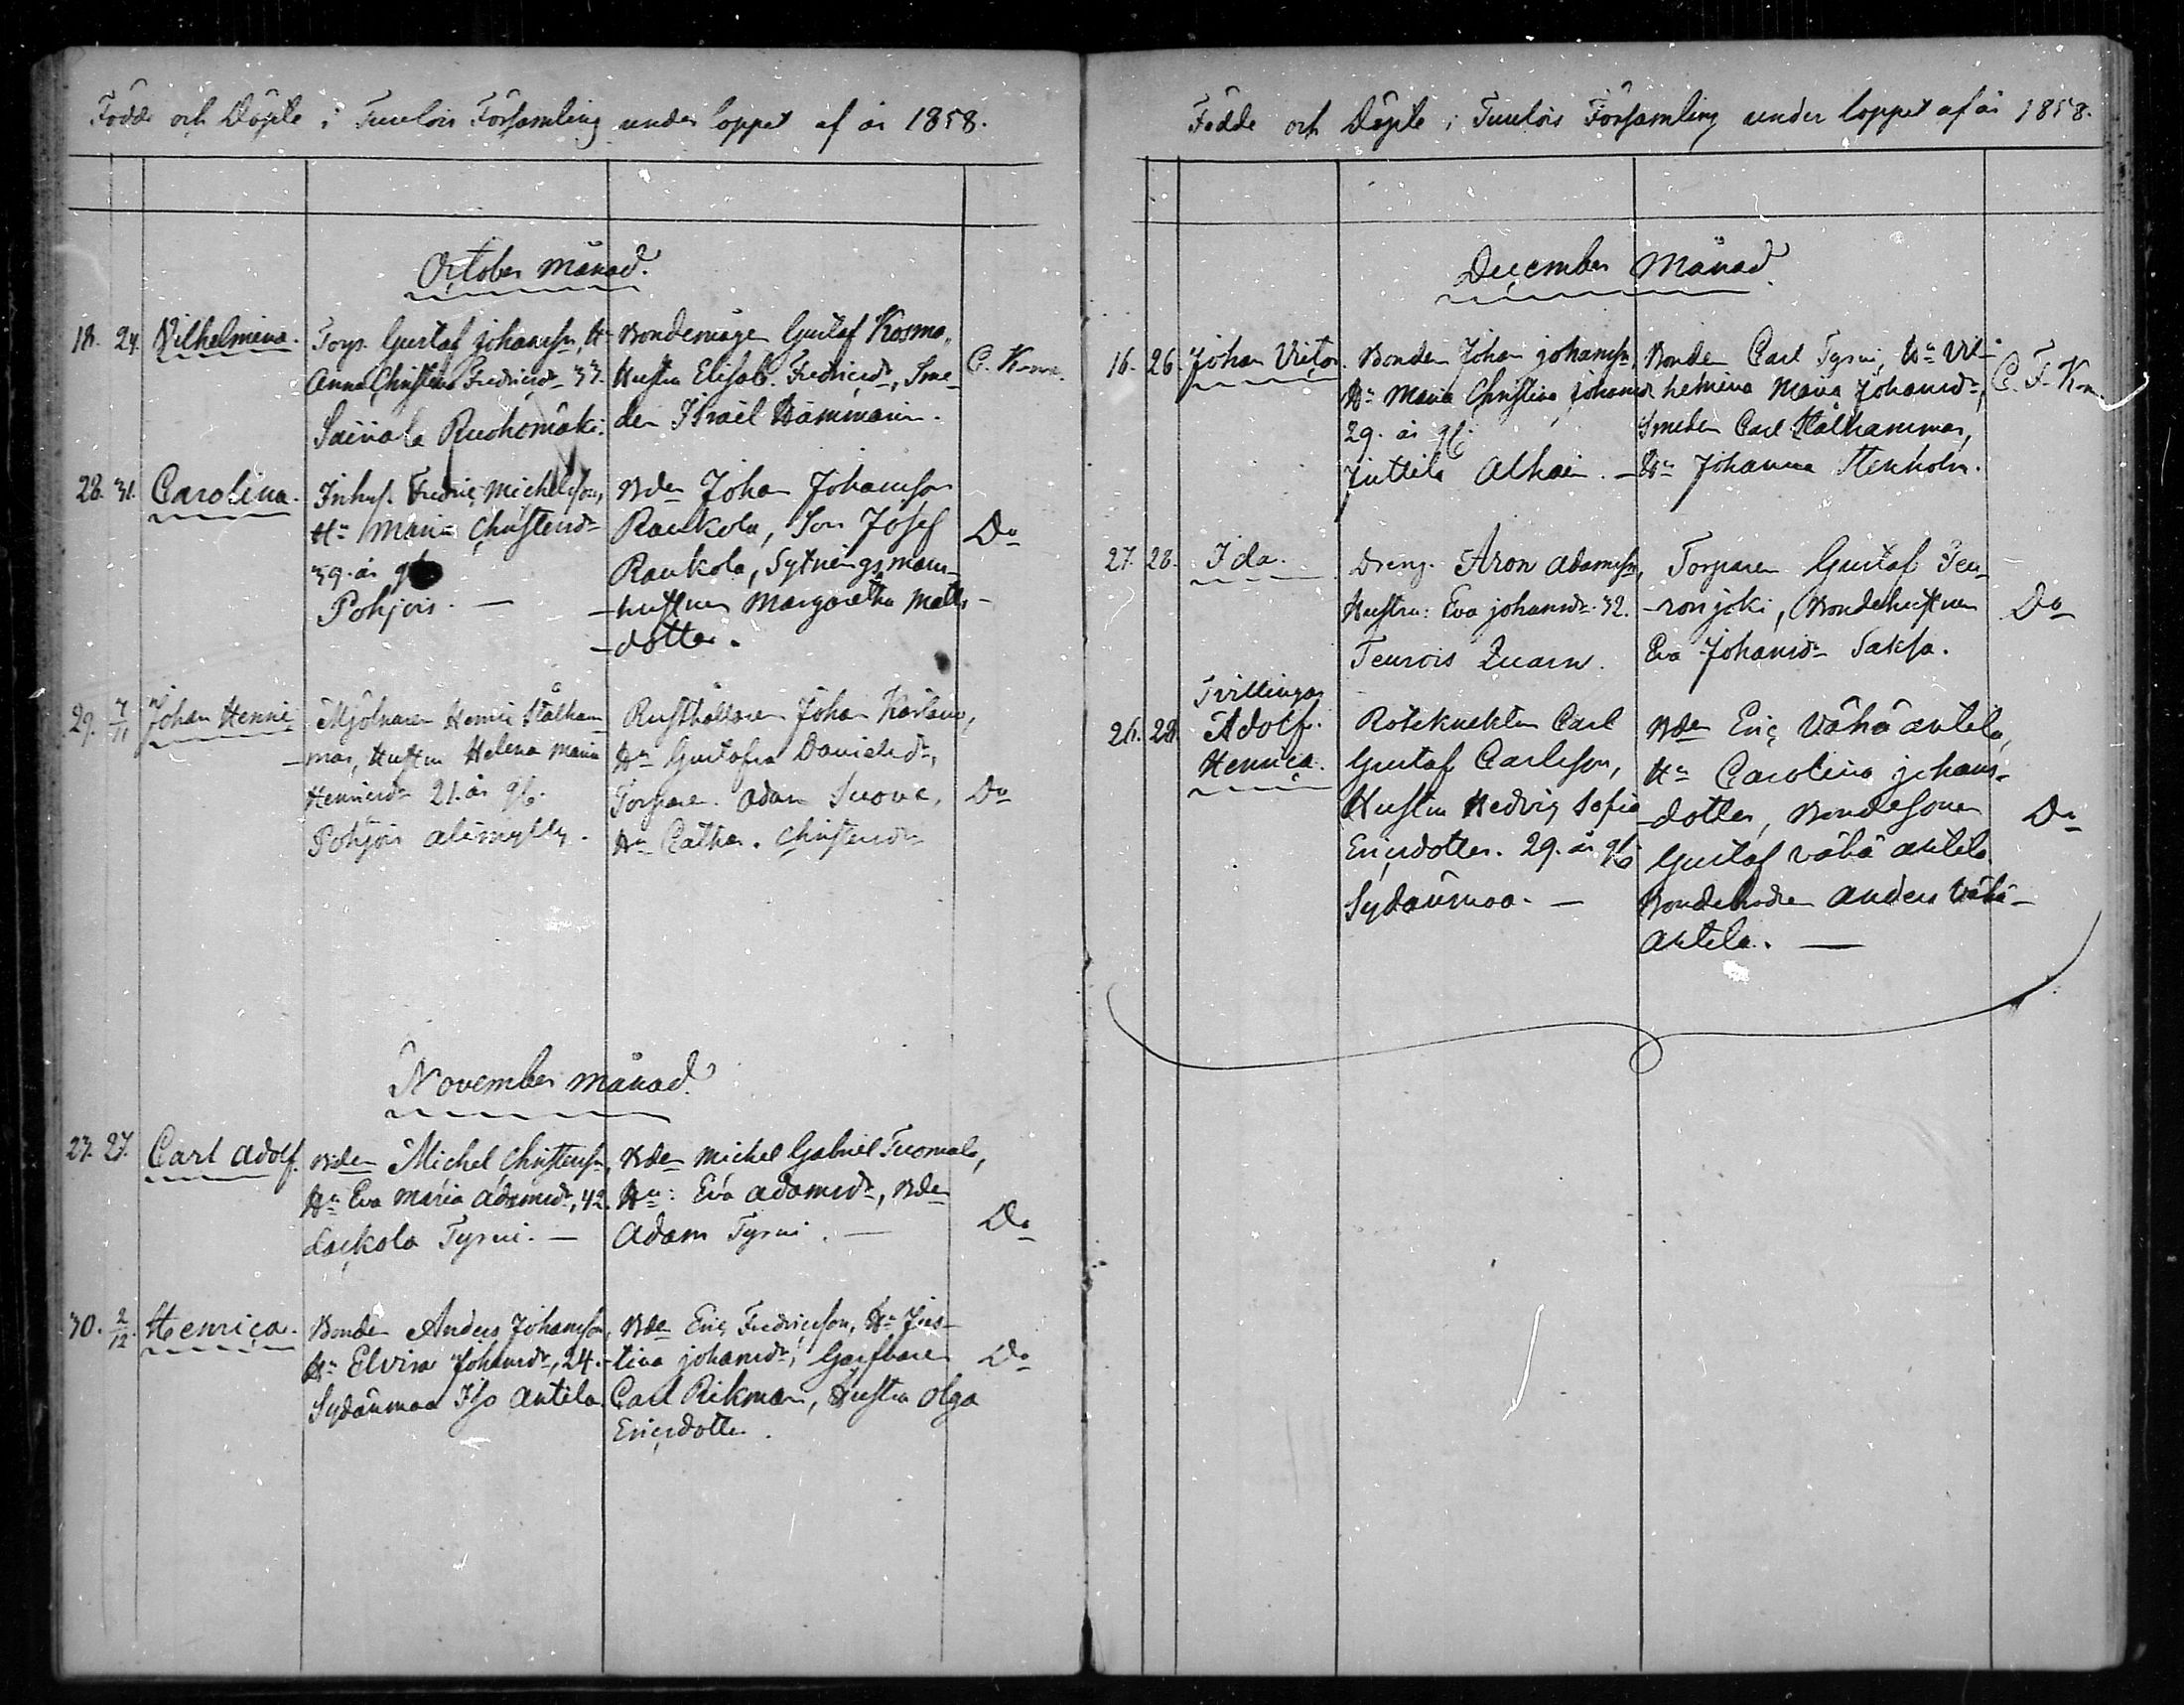 Födde och Döpte i Tuulois Församling under loppet af år 1858.
October månad.
18. 24. Vilhelmina.
Torp. Gustaf Johansson, Hu
Anna Christina Fredricsdr 33.
Sairiala Ruohomäki.
Bondemågen Gustaf Kosma,
Hustru Elisab. Fredricsdr, Sme-
den Israël Hammarin.
C.
28. 31. Carolina.
Inhys. Fredric Michelsson,
Hu Maria Christersdr
39. år
Pohjois. —
Bden Johan Johansson
Raukola, Son Josef
Raukola, Sytningsmans-
-hustrun Margaretha Matts-
-dotter.
Do
29. 7/11 Johan Henric
Mjölnaren Henric Stålham-
-mar, Hustru Helena Maria
Henricsdr 21. år
Pohjois alimylly.
Rusthållaren Johan
Hu Gustafva Danielsdr,
Torparen Adam
Hu Cathar. Christersdr
Do
November månad.
23. 27. Carl Adolf.
Bden Michel Christersson,
Hu Eva Maria Adamsdr, 42.
Lackola Tyrni. —
Bden Michel Gabriel Tuomala,
Hu: Eva Adamsdr, Bden
Adam Tyrni. —
Do
30. 2/12. Henrica.
Bonden Anders Johansson,
Hu Elvira Johansdr, 24.
Sydänmaa Iso Antila
Bden Eric Fredricsson, Hu Jus-
-tina Johansdr, Garfvaren
Carl Rikman, Hustru Olga
Ericsdotter.
Do
Födde och Döpte i Tuulois Församling under loppet af år 1858.
December Månad.
16. 26. Johan Victor.
Bonden Johan Johansson,
Hu Maria Christina Johansd.
29. år
Juttila Alhain. —
Bonden Carl Tyrni, Hu Vil-
helmina Maria Johansdr,
Smeden Carl Stålhammar,
Hu Johanna Stenholm.
C. F.
27. 28. Ida.
Dreng. Aron Adamsson,
Hustru: Eva Johansdr 32.
Teurois Quarn.
Torparen Gustaf Teu-
-ronjoki, Bondehustrun
Eva Johansdr Saksa.
Do
Tvillingar
26. 28. Adolf.
Henrica.
Roteknekten Carl
Gustaf Carlsson,
Hustru Hedvig Sofia
Ericsdotter. 29. år
Sydänmaa. —
Bden Eric Vähä antila,
Hu Carolina Johans-
-dotter, Bondesonen
Gustaf Vähä antila
Bondebrodren Anders Vähä-
antila. —
Do